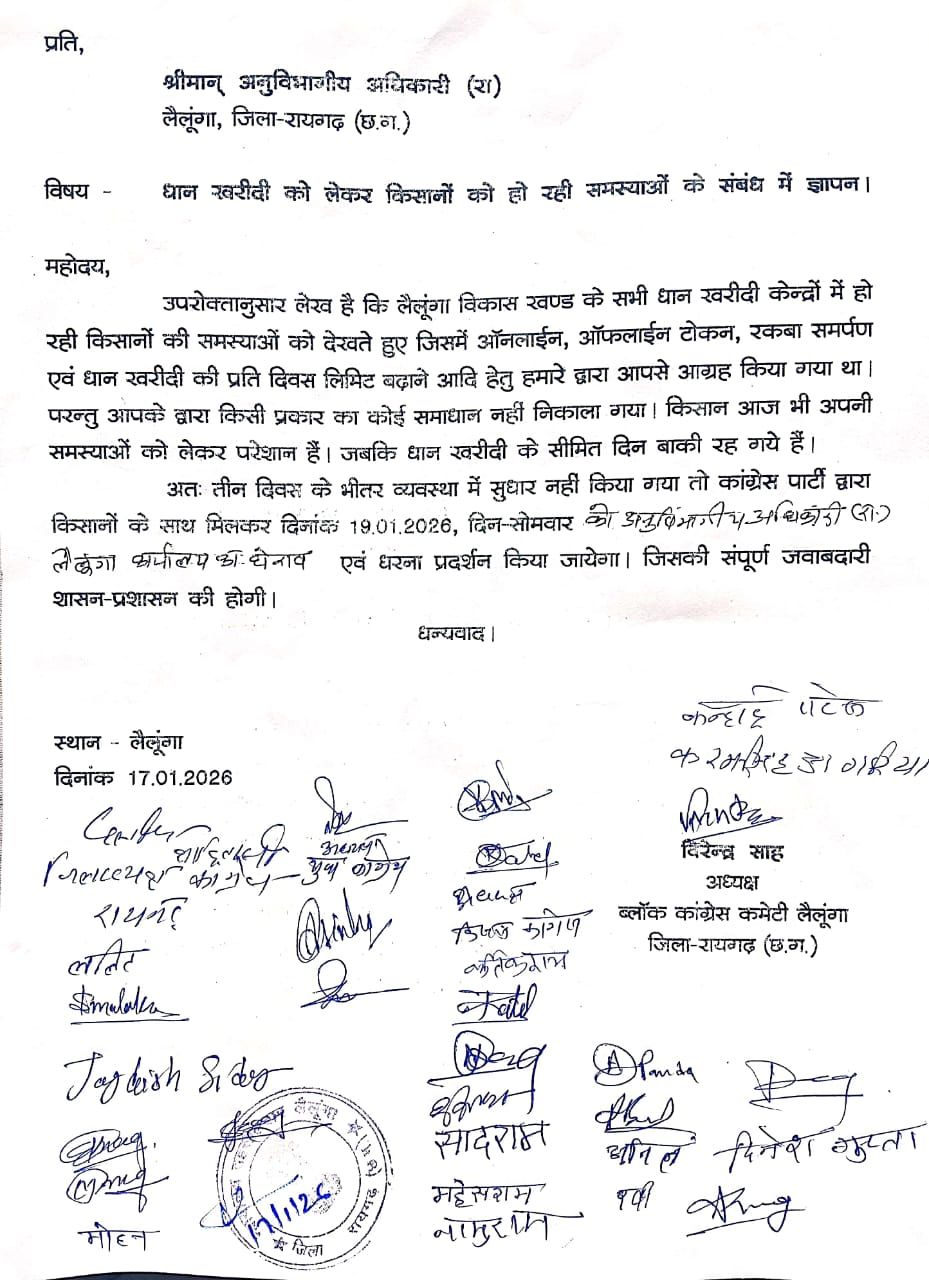 प्रति,
श्रीमान् अनुविभागीय अधिकारी (रा)
लैलूंगा, जिला-रायगढ़ (छ.ग.)
विषय - धान खरीदी को लेकर किसानों को हो रही समस्याओं के संबंध में ज्ञापन।
महोदय,
उपरोक्तानुसार लेख है कि लैलूंगा विकास खण्ड के सभी धान खरीदी केन्द्रों में हो
रही किसानों की समस्याओं को देखते हुए जिसमें ऑनलाईन, ऑफलाईन टोकन, रकबा समर्पण
एवं धान खरीदी की प्रति दिवस लिमिट बढ़ाने आदि हेतु हमारे द्वारा आपसे आग्रह किया गया था।
परन्तु आपके द्वारा किसी प्रकार का कोई समाधान नहीं निकाला गया। किसान आज भी अपनी
समस्याओं को लेकर परेशान हैं। जबकि धान खरीदी के सीमित दिन बाकी रह गये हैं।
अतः तीन दिवस के भीतर व्यवस्था में सुधार नहीं किया गया तो कांग्रेस पार्टी द्वारा
किसानों के साथ मिलकर दिनांक 19.01.2026, दिन-सोमवार को अनुविभागीय अधिकारी (रा.)
लैलूंगा कार्यालय का घेराव एवं धरना प्रदर्शन किया जायेगा। जिसकी संपूर्ण जवाबदारी
शासन-प्रशासन की होगी।
धन्यवाद।
स्थान - लैलूंगा
दिनांक 17.01.2026
कन्हाई पटेल
विरेन्द्र साह
अध्यक्ष
ब्लॉक कांग्रेस कमेटी लैलूंगा
जिला-रायगढ़ (छ.ग.)
रायगढ़
ललित
कार्तिकराम
Patel
Jagdish
Panda
सादराम
अनिल
दिनेश गुप्ता
महेसराम
मोहन
नामुराम
लैलूंगा
रायगढ़
जिला
17/1/26